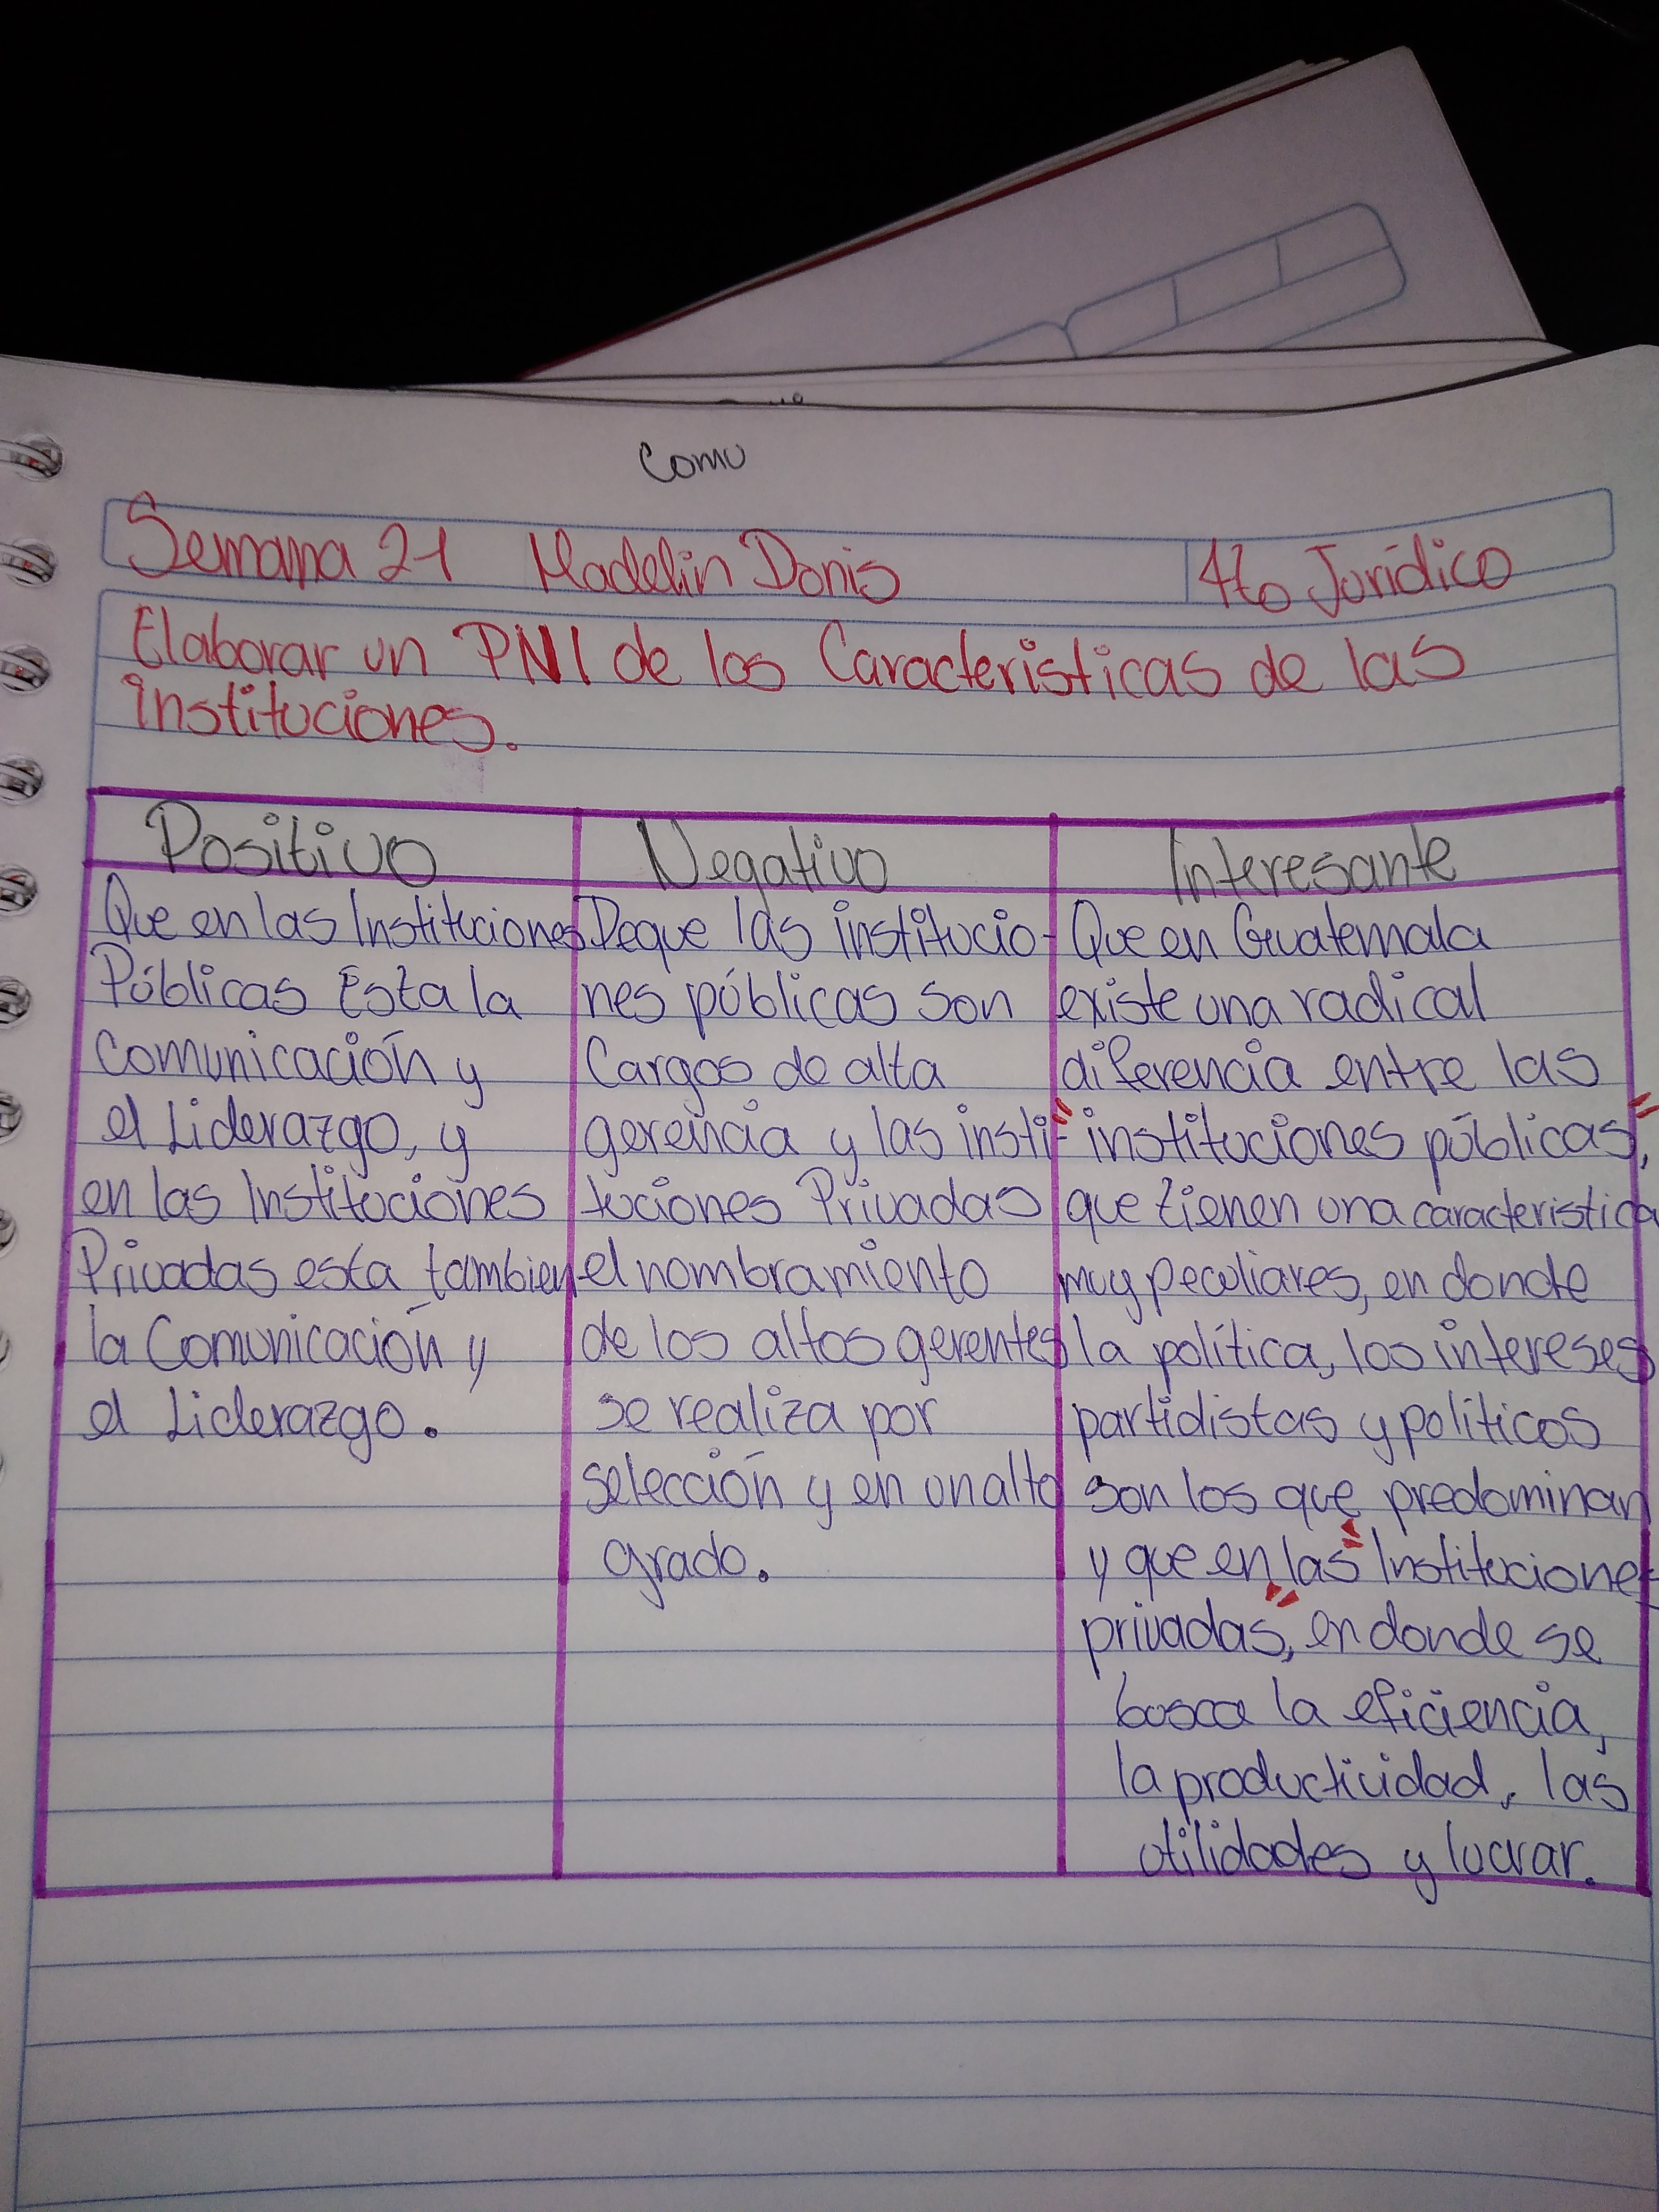 Comu
Semana 21 Madelin Donis 4to Jurídico
Elaborar un PNI de las Caracteristicas de las
instituciones.
Positivo
Que en las Instituciones
Públicas Esta la
Comunicación y
el Liderazgo, y
en las Instituciones
Privadas esta tambien
la Comunicación y
el Liderazgo.
Negativo
Deque las institucio-
nes públicas son
Cargos de alta
gerencia y las insti-
tuciones Privadas
el nombramiento
de los altos gerentes
se realiza por
selección y en un alto
grado.
Interesante
Que en Guatemala
existe una radical
diferencia entre las
"instituciones públicas",
que tienen una caracteristica
muy peculiares, en donde
la política, los intereses
partidistas y políticos
son los que predominan
y que en las "Instituciones
privadas", en donde se
busca la eficiencia,
la productividad, las
utilidades y lucrar.